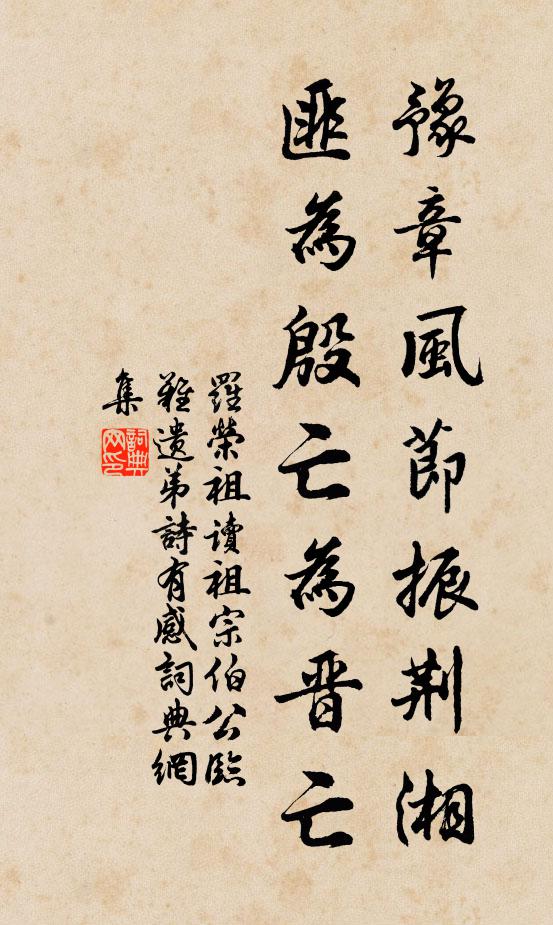 豫章風節振荆湘
匪為殷亡為晋亡
羅榮祖讀祖宗伯公臨
難遺弟詩有感詞典網
集
詞典
网印